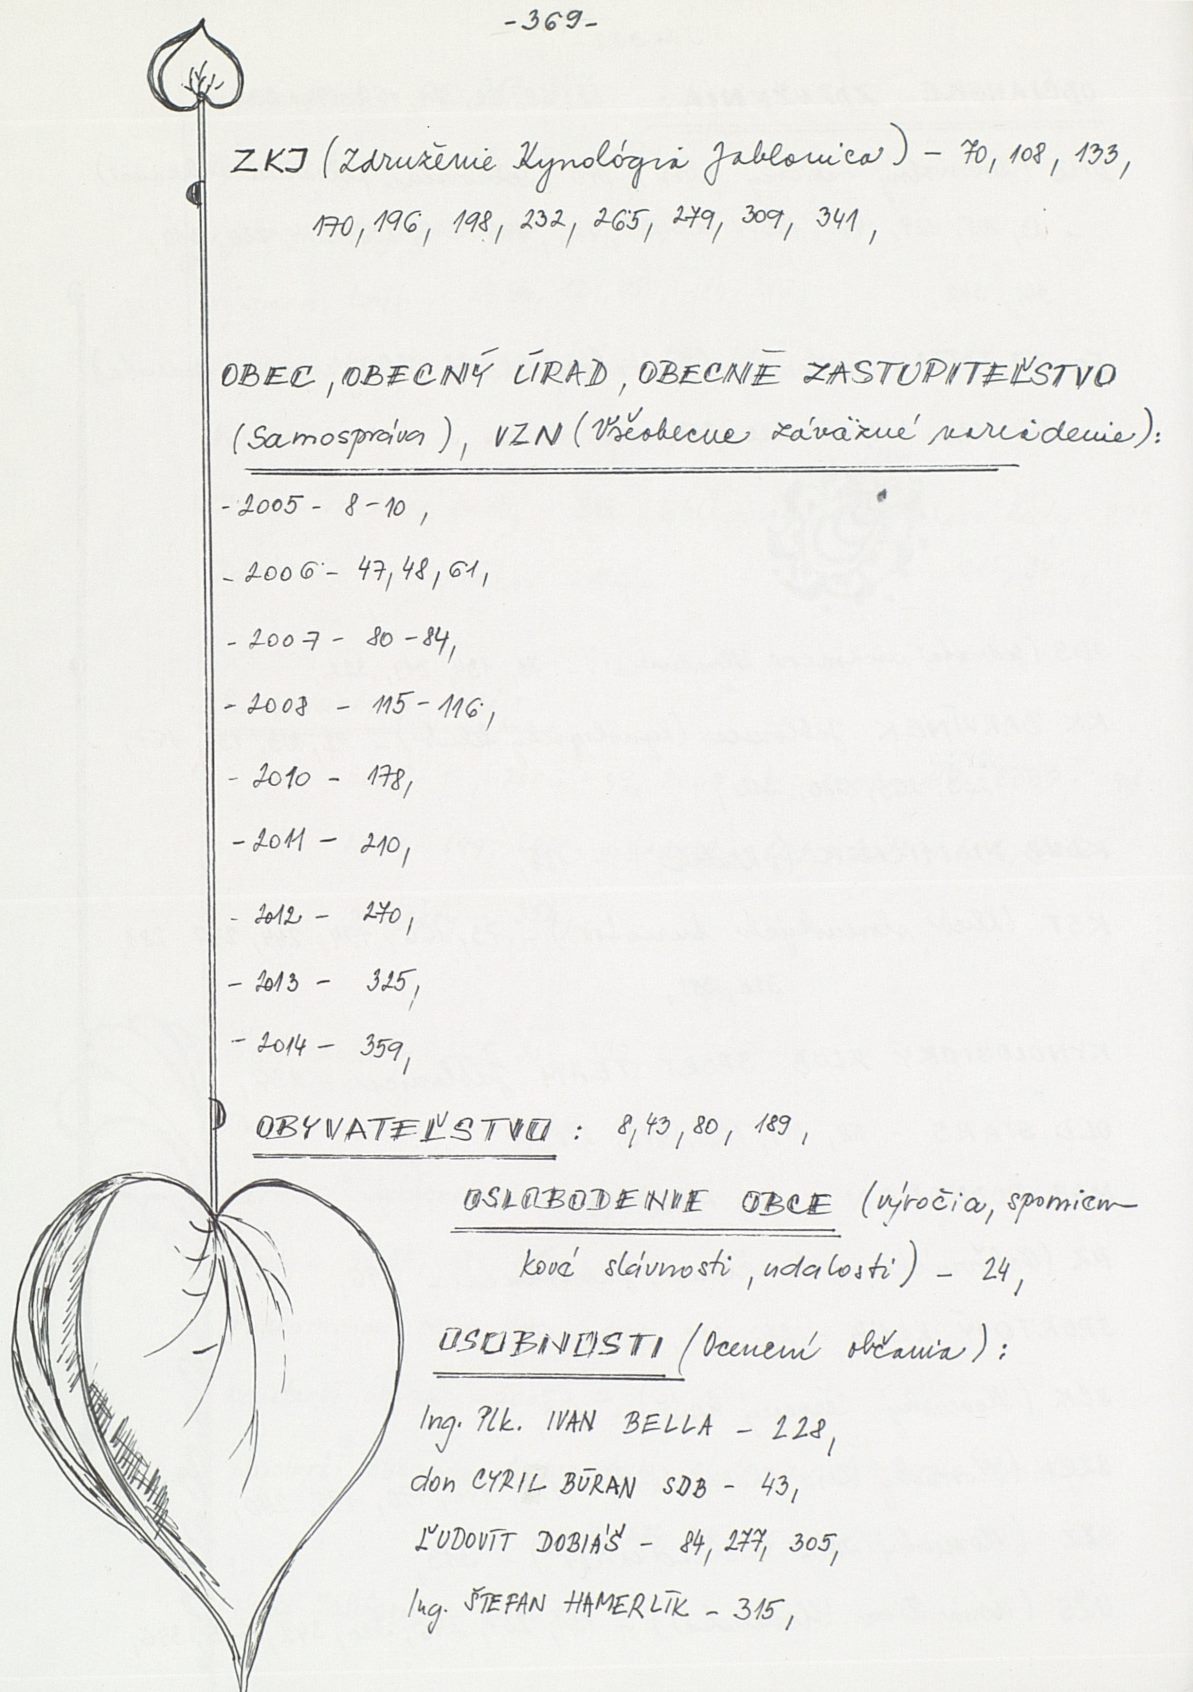 -369-
ZKJ (Združenie Kynológia Jablonica) - 70, 108, 133,
170, 196, 198, 232, 265, 279, 309, 341,
OBEC, OBECNÝ ÚRAD, OBECNÉ ZASTUPITEĽSTVO
(Samospráva), VZN (Všeobecne záväzné nariadenie):
- 2005 - 8-10,
- 2006 - 47, 48, 61,
- 2007 - 80-84,
- 2008 - 115-116,
- 2010 - 178,
- 2011 - 210,
- 2012 - 270,
- 2013 - 325,
- 2014 - 359,
OBYVATEĽSTVO : 8, 43, 80, 189,
OSLOBODENIE OBCE (výročia, spomien-
ková slávnosti, udalosti) - 24,
OSOBNOSTI (Ocenení občania):
Ing. Plk. IVAN BELLA - 228,
don CYRIL BÚRAN SDB - 43,
ĽUDOVÍT DOBIÁŠ - 84, 277, 305,
Ing. ŠTEFAN HAMERLÍK - 315,